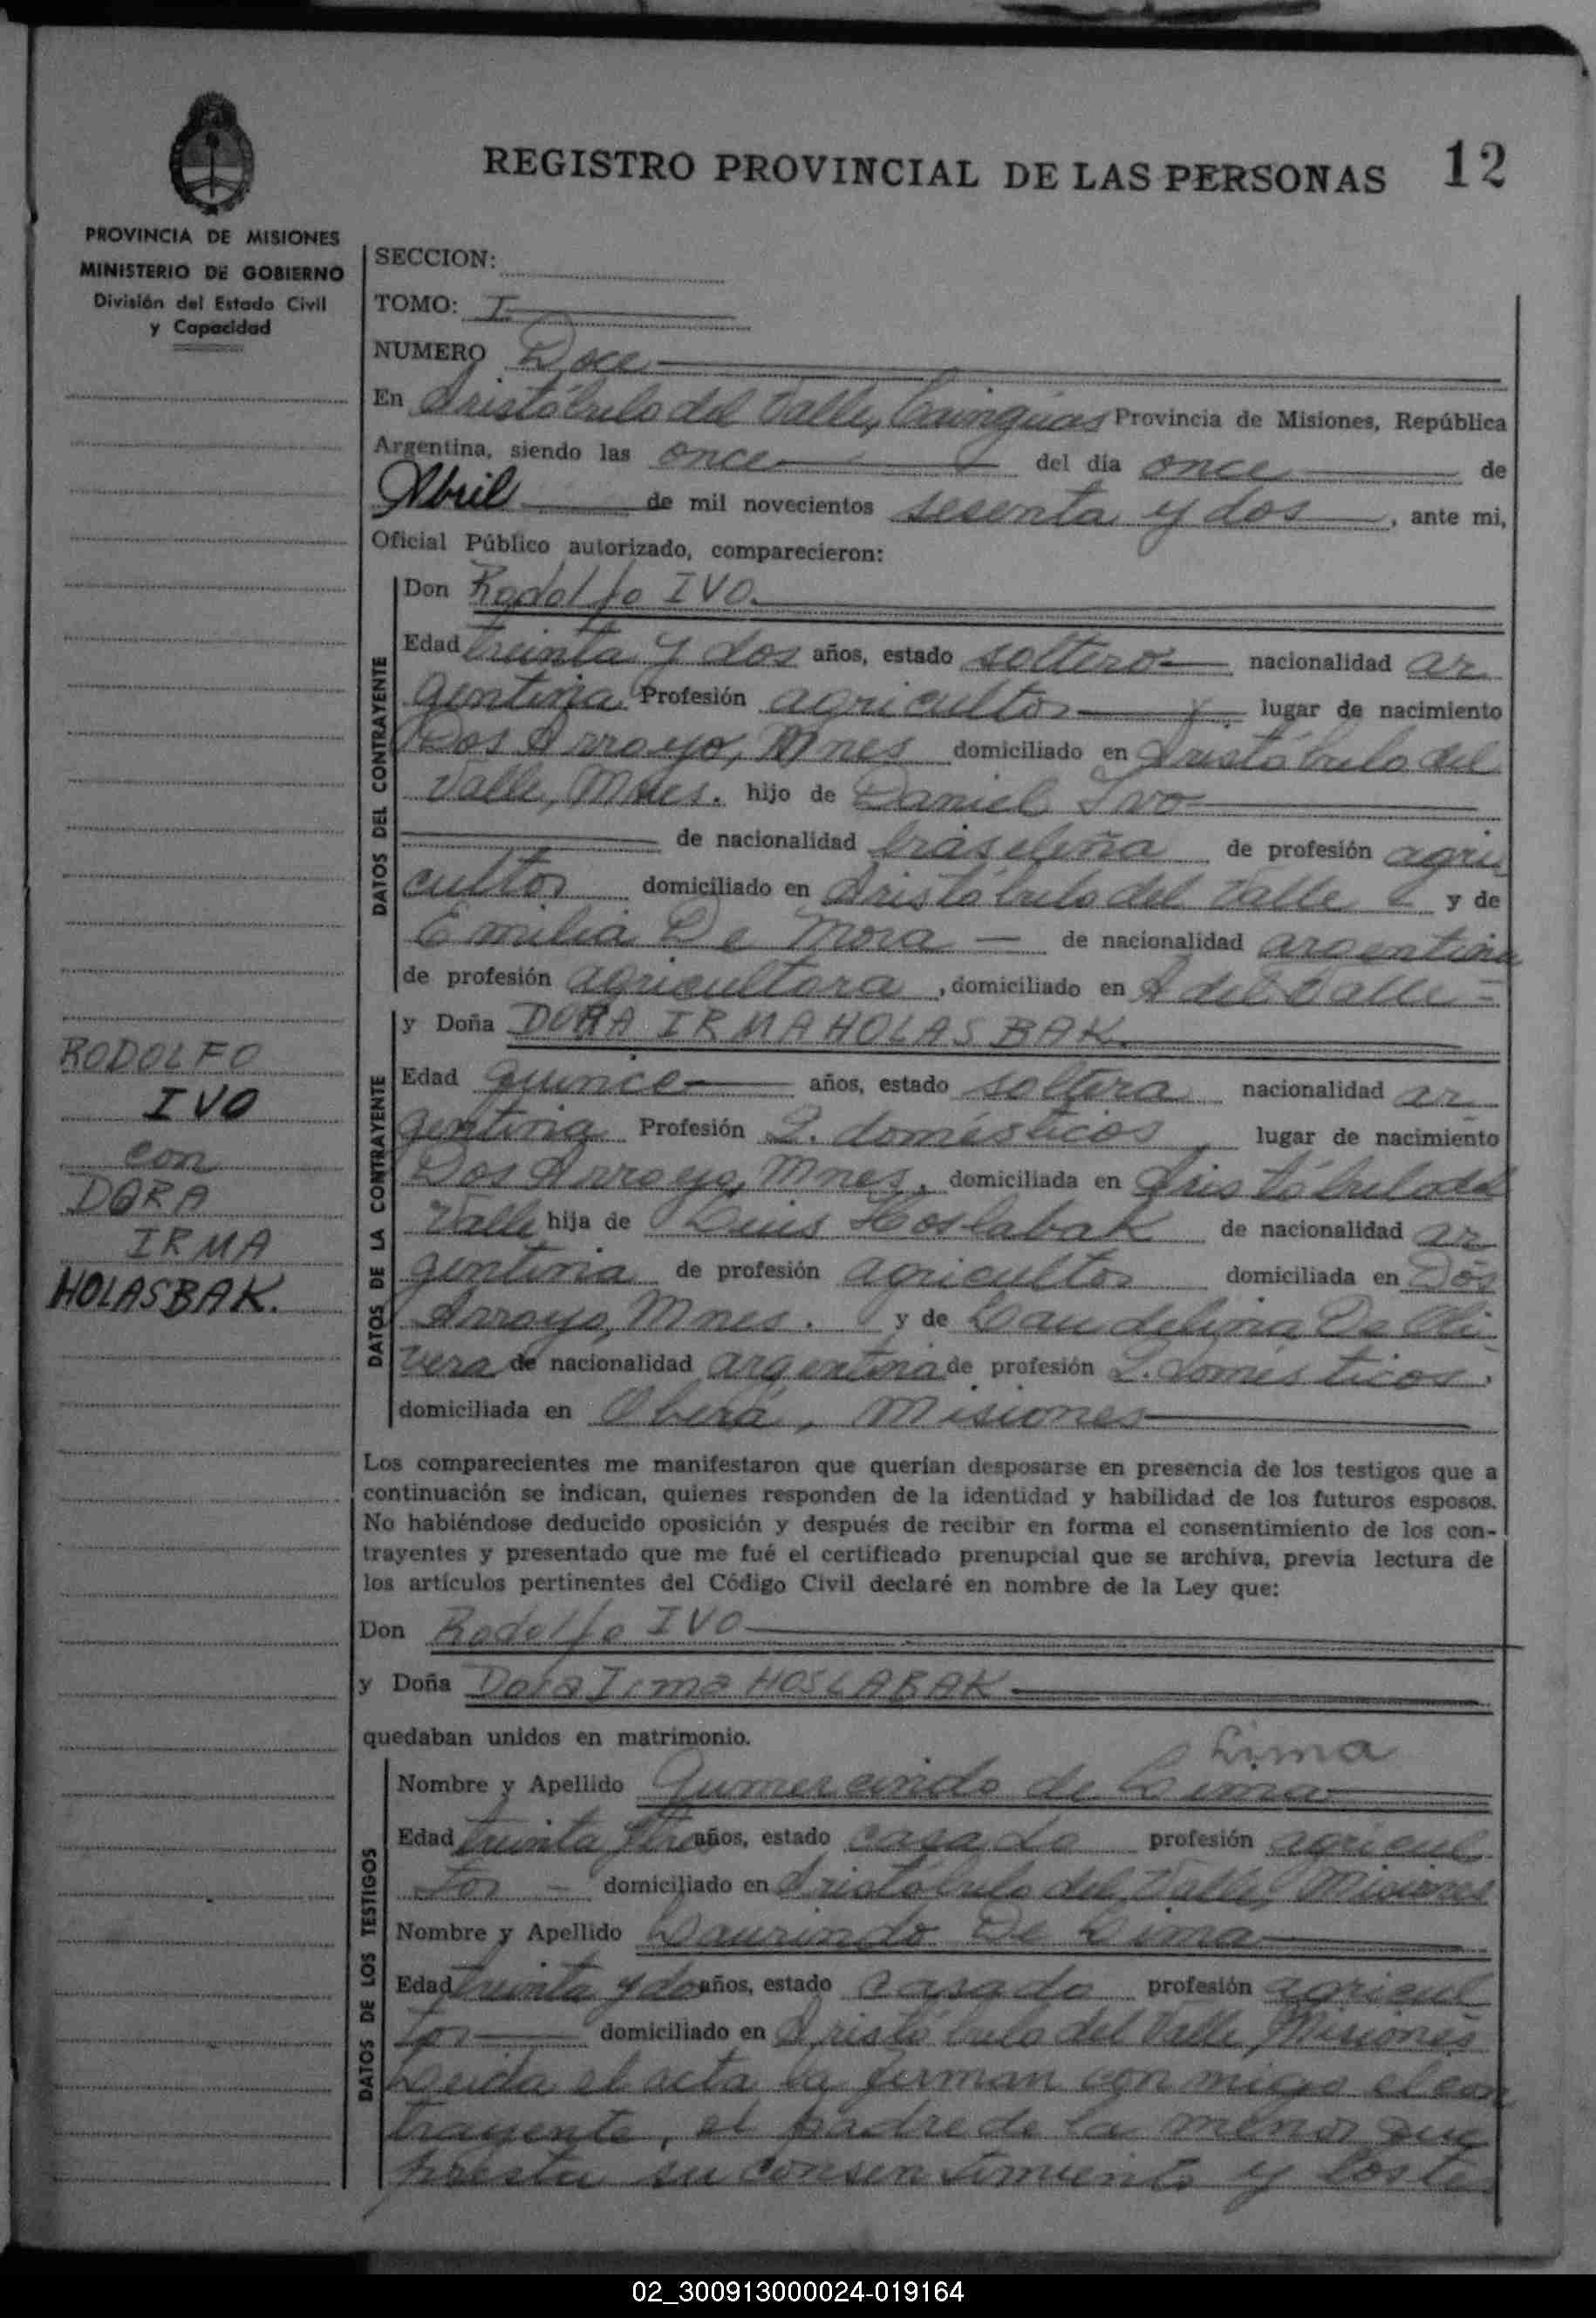 REGISTRO PROVINCIAL DE LAS PERSONAS 12
PROVINCIA DE MISIONES
MINISTERIO DE GOBIERNO
División del Estado Civil
y Capacidad
SECCION:
TOMO: I
NUMERO Doce
En Aristóbulo del Valle, Cainguás Provincia de Misiones, República
Argentina, siendo las once del día once de
Abril de mil novecientos sesenta y dos, ante mi,
Oficial Público autorizado, comparecieron:
DATOS DEL CONTRAYENTE
Don Rodolfo IVO
Edad treinta y dos años, estado soltero nacionalidad ar
gentina Profesión agricultor lugar de nacimiento
Dos Arroyo, Mnes domiciliado en Aristóbulo del
Valle, Mnes. hijo de Daniel Ivo
de nacionalidad brasileña de profesión agri
cultor domiciliado en Aristóbulo del Valle y de
Emilia De Mora de nacionalidad argentina
de profesión agricultora, domiciliado en A del Valle
DATOS DE LA CONTRAYENTE
y Doña DORA IRMA HOLASBAK
Edad quince años, estado soltera nacionalidad ar
gentina Profesión Q. domésticos, lugar de nacimiento
Dos Arroyo, Mnes, domiciliada en Aristóbulo del
Valle hija de Luis Hoslabak de nacionalidad ar
gentina de profesión agricultor domiciliada en Dos
Arroyo, Mnes. y de Laudelina De Oli
vera de nacionalidad argentina de profesión Q. domésticos,
domiciliada en Oberá, Misiones
RODOLFO
IVO
con
DORA
IRMA
HOLASBAK.
Los comparecientes me manifestaron que querían desposarse en presencia de los testigos que a
continuación se indican, quienes responden de la identidad y habilidad de los futuros esposos.
No habiéndose deducido oposición y después de recibir en forma el consentimiento de los con-
trayentes y presentado que me fué el certificado prenupcial que se archiva, previa lectura de
los artículos pertinentes del Código Civil declaré en nombre de la Ley que:
Don Rodolfo IVO
y Doña Dora Irma HOSLABAK
quedaban unidos en matrimonio.
DATOS DE LOS TESTIGOS
Lima
Nombre y Apellido Gumercindo de Lima
Edad treinta y tres años, estado casado profesión agricul
tor domiciliado en Aristóbulo del Valle, Misiones
Nombre y Apellido Laurindo De Lima
Edad treinta y dos años, estado casado profesión agricul
tor domiciliado en Aristóbulo del Valle, Misiones
Leida el acta la firman con migo el con
trayente, el padre de la menor que
presta su consentimiento y los te
02_300913000024-019164